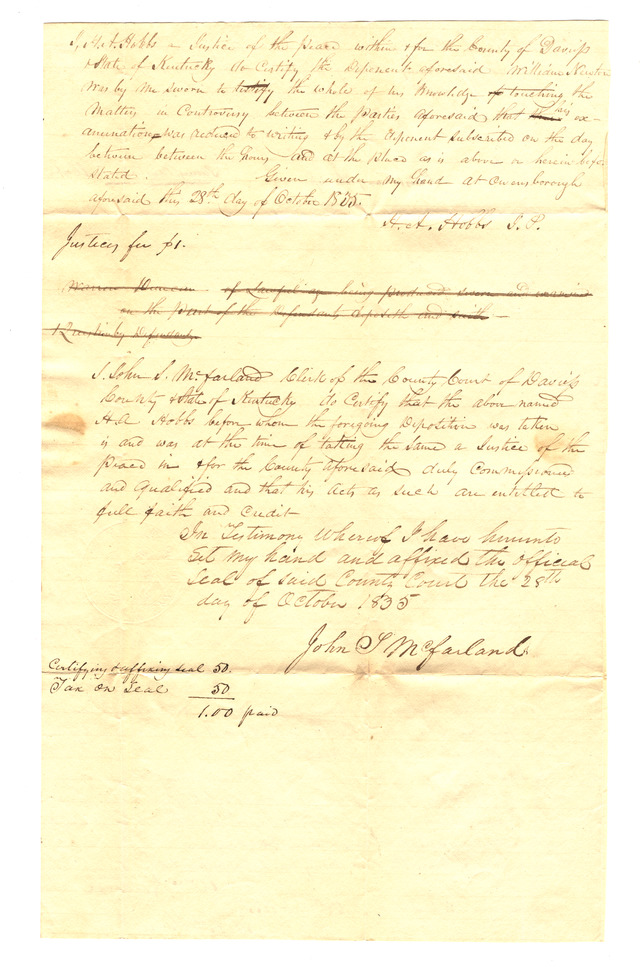 I, H. A. Hobbs a Justice of the peace within & for the County of Daviess
& State of Kentucky do Certify the Deponent aforesaid William Newton
was by me sworn to testify the whole of his Knowledge of touching the
Matters in Controversy between the parties aforesaid that his ex-
amination was reduced to writing & by the deponent subscribed on the day
between between the hours and at the place as is above or herein before
stated. Given under my hand at Owensborough
aforesaid this 28th day of October 1835.
H. A. Hobbs J. P.
Justices fee $1.
being produced sworn and examined
on the part of the Defendants deposeth and saith
1 Question by Defendants
I, John S. McFarland Clerk of the County Court of Daviess
County & State of Kentucky do Certify that the above named
H A Hobbs before whom the foregoing Deposition was taken
is and was at the time of taking the same a Justice of the
peace in & for the County aforesaid duly Commissioned
and qualified and that his acts as such are entitled to
full faith and credit
In Testimony Whereof I have hereunto
Set my hand and affixed the official
Seal of said County Court the 28th
day of October 1835
John S McFarland
Certifying & affixing seal 50.
Tax on Seal 50
1.00 paid